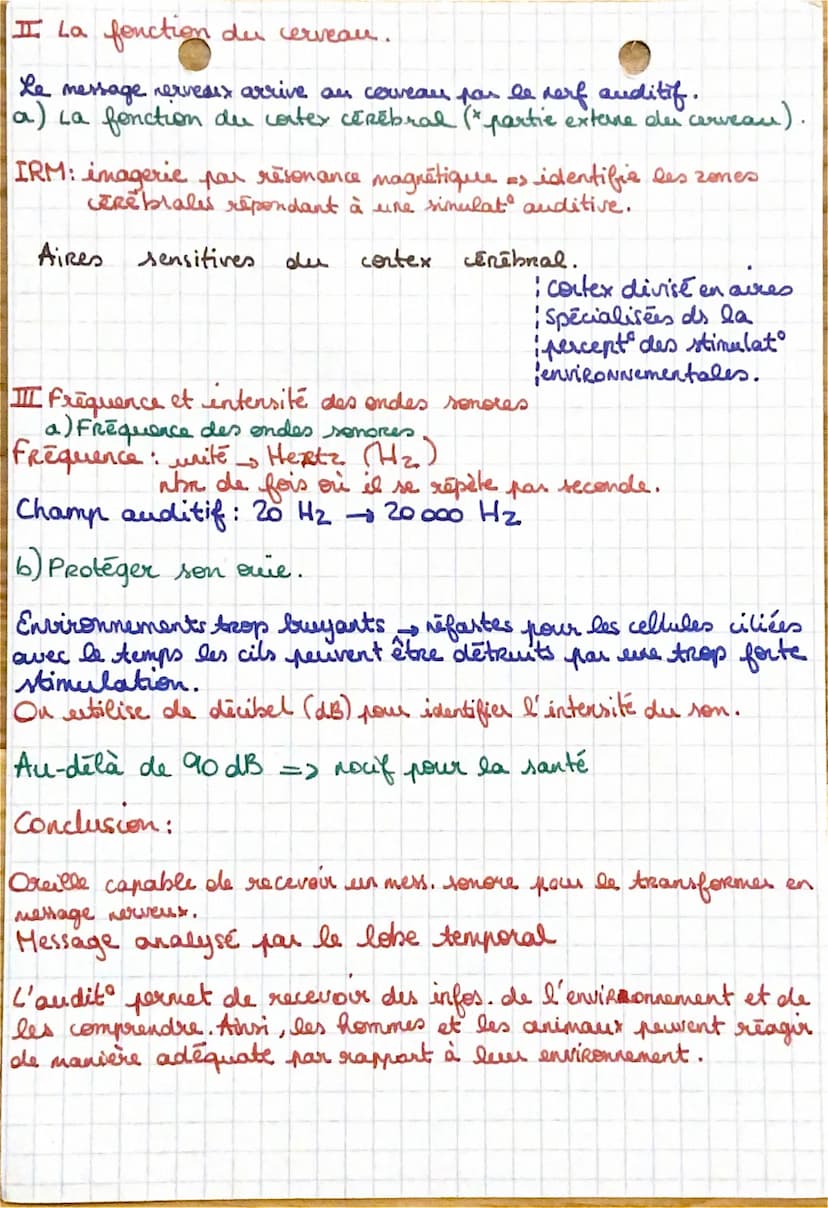 II La fonction du cerveau.
Le message nerveux arrive au cerveau par le nerf auditif.
a) La fonction du cortex cérébral (* partie externe du cerveau).
IRM : imagerie par résonance magnétique => identifie les zones
cérébrales répondant à une simulat° auditive.
Aires sensitives du cortex cérébral.
cortex divisé en aires
spécialisées ds la
percept° des stimulat°
environnementales.
III Fréquence et intensité des ondes sonores
a) Fréquence des ondes sonores.
Fréquence : unité → Hertz (Hz)
nbr de fois où il se répète par seconde.
Champ auditif : 20 Hz → 20 000 Hz
b) Protéger son ouïe.
Environnements trop bruyants → néfastes pour les cellules ciliées
avec le temps les cils peuvent être détruits par une trop forte
stimulation.
On utilise de décibel (dB) pour identifier l'intensité du son.
Au-délà de 90 dB => nocif pour la santé
Conclusion :
Oreille capable de recevoir un mess. sonore pour le transformer en
message nerveux.
Message analysé par le lobe temporal
L'audit° permet de recevoir des infos. de l'environnement et de
les comprendre. Ainsi, les hommes et les animaux peuvent réagir
de manière adéquate par rapport à leur environnement.